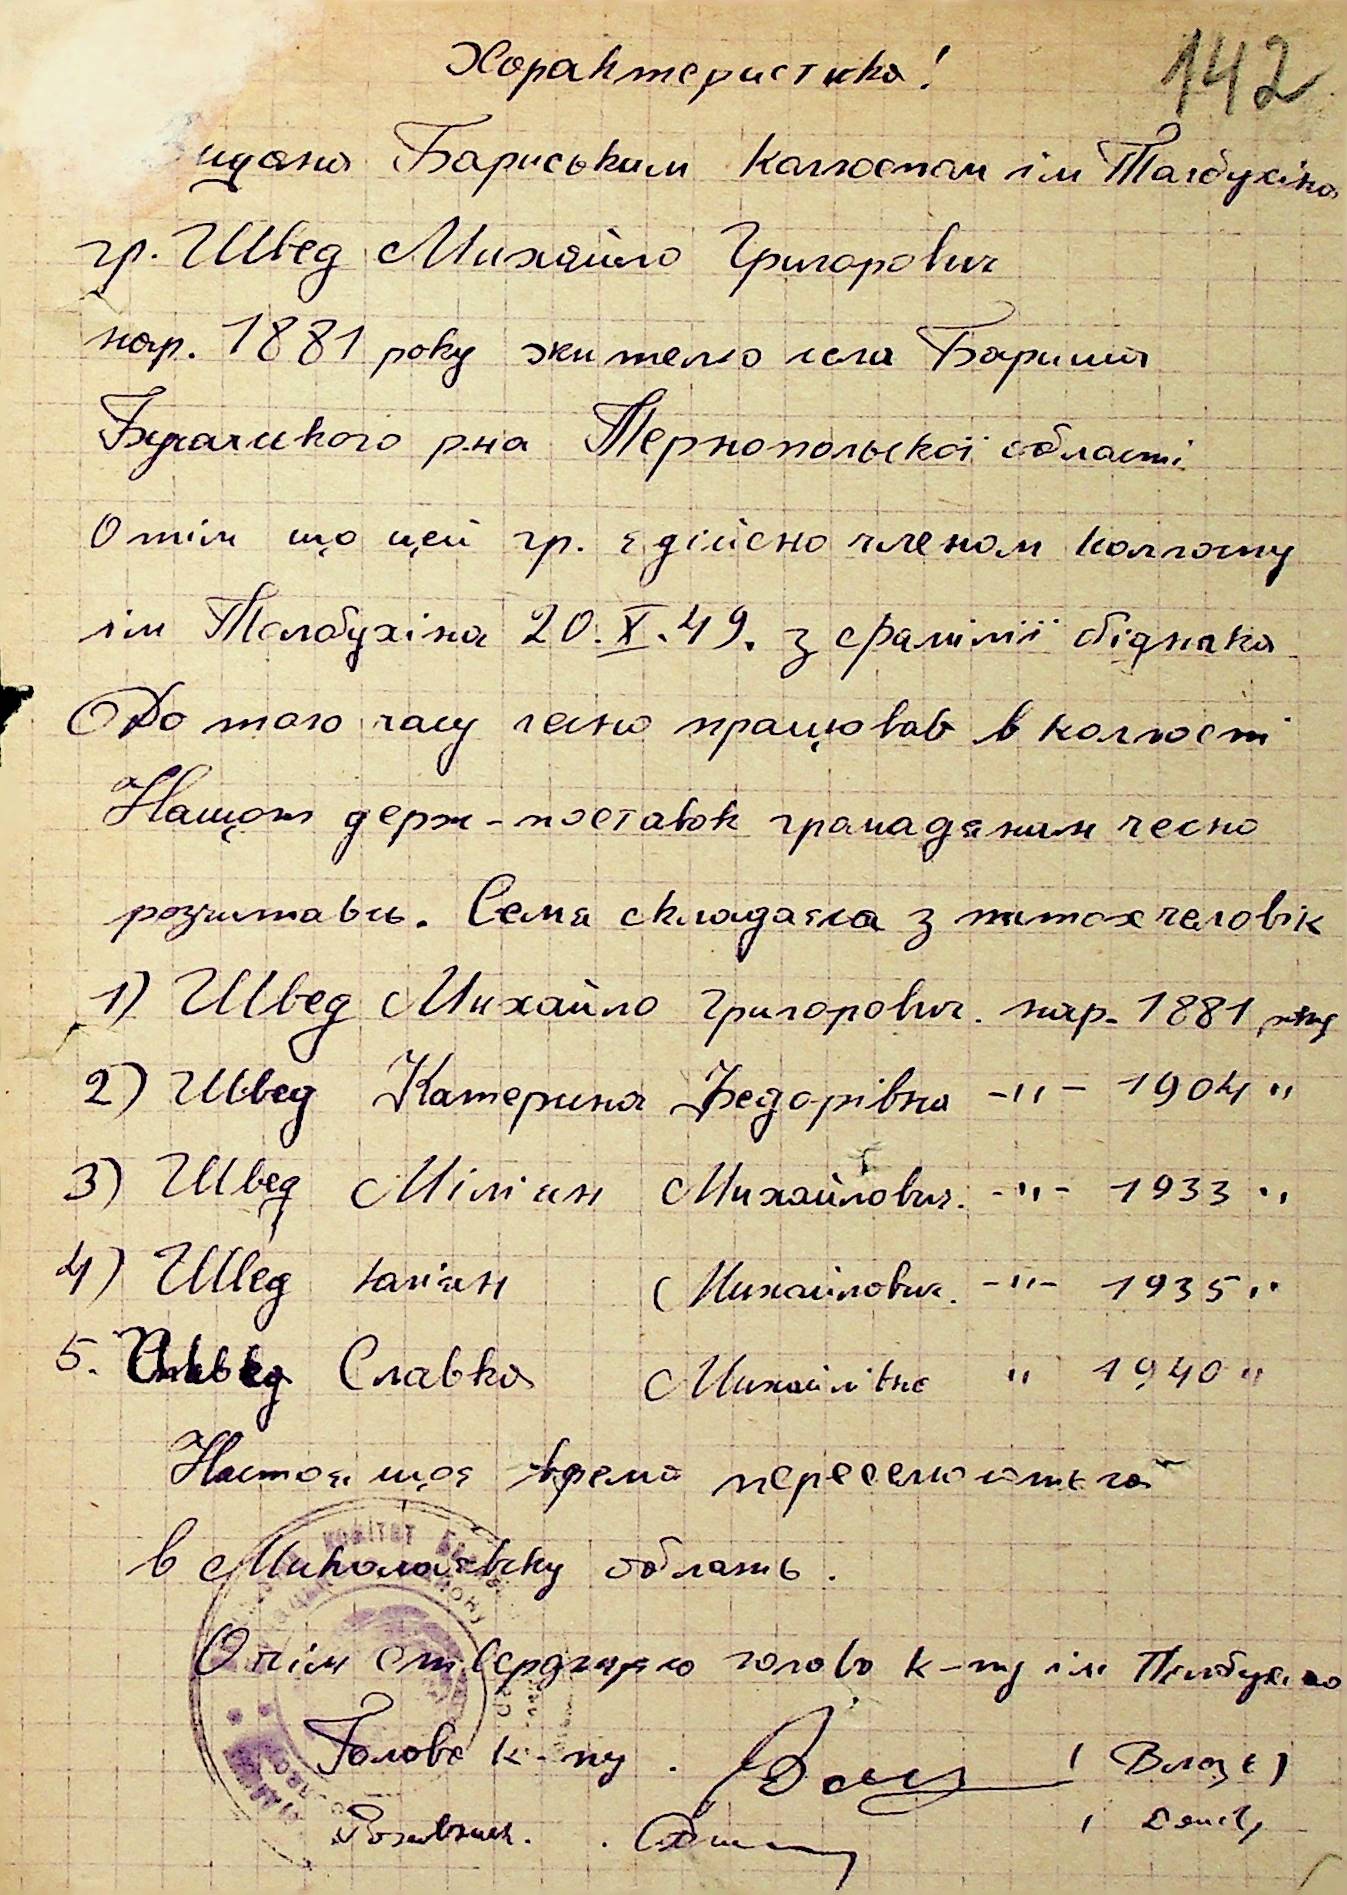 Характеристика!
142
Видана Бариським Колгоспом ім Толбухіна
гр. Швед Михайло Григорович
нар. 1881 року жителю села Бариша
Бучачького р-на Тернопольскої області
О тім що цей гр. є дійсно членом колгоспу
ім Толбухіна 20.X.49. з фамілії бідняка
До того часу чесно працював в колгоспі
Нащот держ-поставок громадянин чесно
розчитавсь. Семя складаєся з пятох человік
1) Швед Михайло Григорович. нар. 1881 року
2) Швед Катерина Федорівна -"- 1904 "
3) Швед Міліян Михайлович. -"- 1933 "
4) Швед Юліян Михайлович. -"- 1935 "
5. Швед Славка Михайлівна " 1940 "
Настоящоя время переселюються
в Миколаєвську область.
О чім стверджуєю голова к-пу ім Толбухіна
Голова к-пу . ( Влаз )